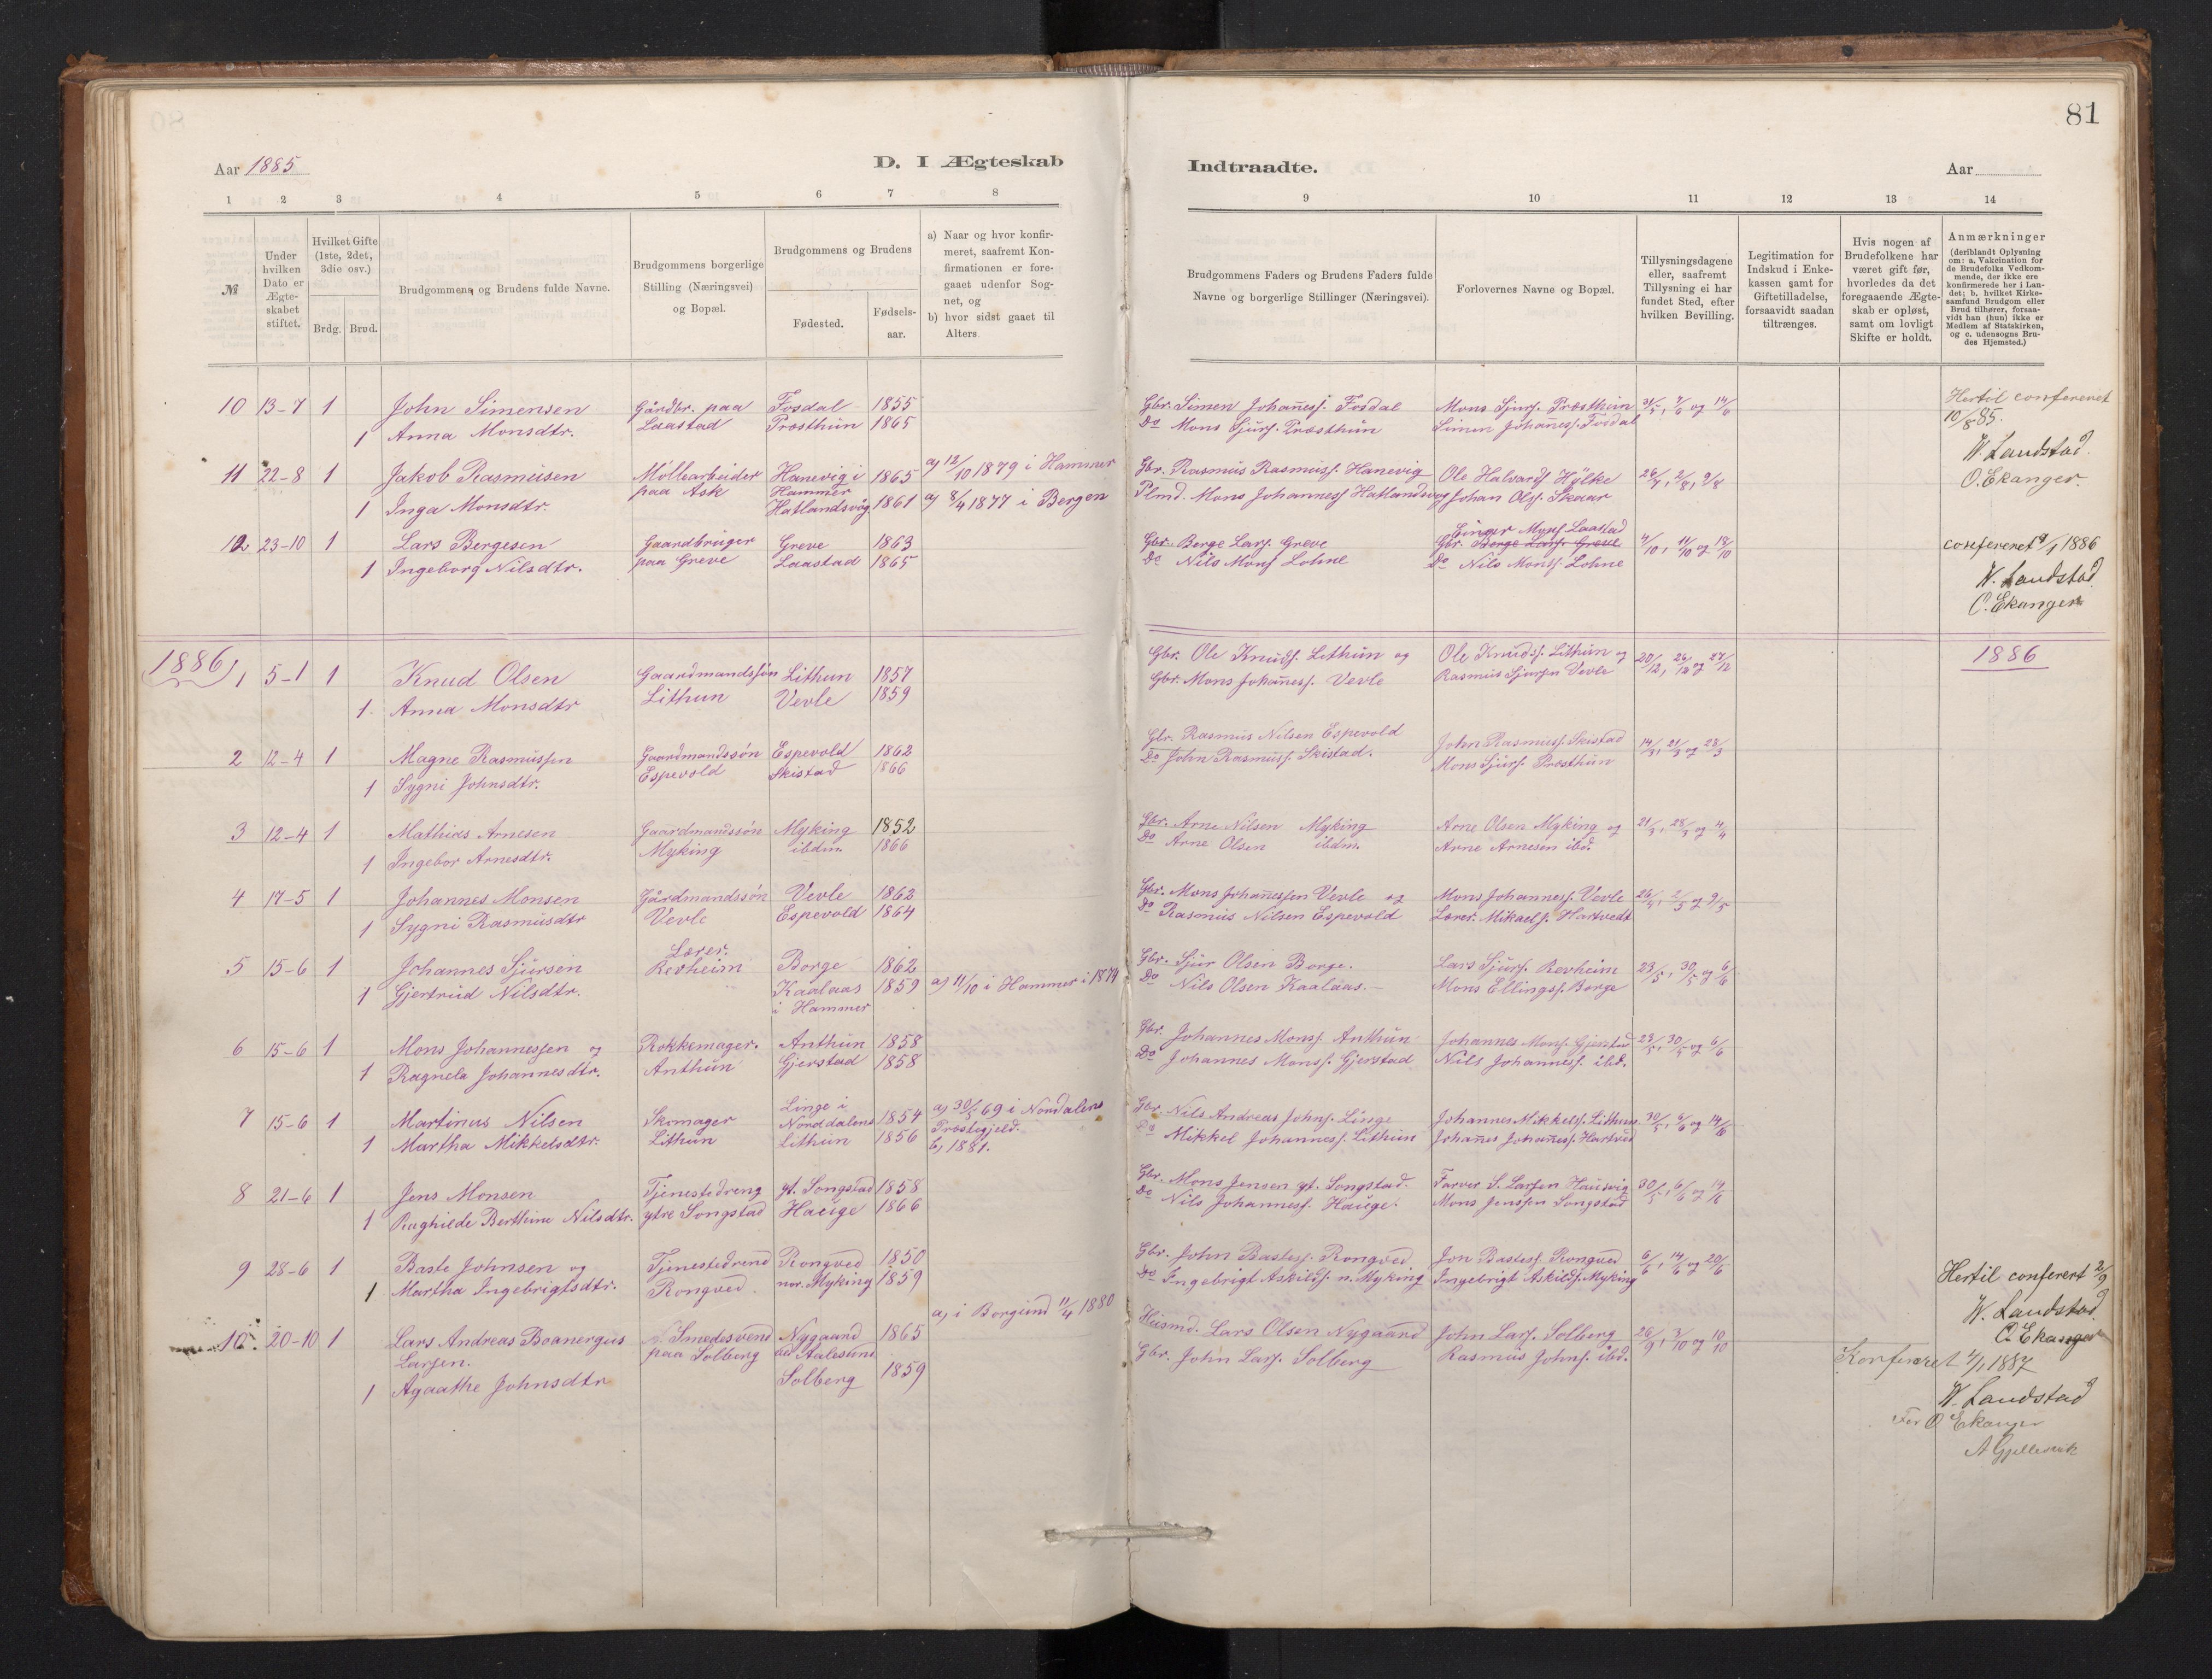 81
Aar 1885
D. I Ægteskab
Indtraadte.
Aar
1 2 3 4 5 6 7 8
9 10 11 12 13 14
№
Under hvilken Dato er Ægteskabet stiftet.
Hvilket Gifte (1ste, 2det, 3die osv.)
Brdg. Brud.
Brudgommens og Brudens fulde Navne.
Brudgommens borgerlige Stilling (Næringsvei) og Bopæl.
Brudgommens og Brudens
Fødested.
Fødselsaar.
a) Naar og hvor konfirmeret, saafremt Konfirmationen er foregaaet udenfor Sognet, og
b) hvor sidst gaaet til Alters.
Brudgommens Faders og Brudens Faders fulde Navne og borgerlige Stillinger (Næringsvei).
Forlovernes Navne og Bopæl.
Tillysningsdagene eller, saafremt Tillysning ei har fundet Sted, efter hvilken Bevilling.
Legitimation for Indskud i Enkekassen samt for Giftetilladelse, forsaavidt saadan tiltrænges.
Hvis nogen af Brudefolkene har været gift før, hvorledes da det foregaaende Ægteskab er opløst, samt om lovligt Skifte er holdt.
Anmærkninger (deriblandt Oplysning om: a. Vakcination for de Brudefolks Vedkommende, der ikke ere konfirmerede her i Landet; b. hvilket Kirkesamfund Brudgom eller Brud tilhører, forsaavidt han (hun) ikke er Medlem af Statskirken, og c. udensogns Brudes Hjemsted.)
10 13-7 1 John Simensen Gårdbr. paa Fosdal 1855 Gbr. Simen Johaness. Fosdal Mons Sjurs. Præsthun 31/5, 7/6 og 14/6 Hertil confereret
1 Anna Monsdtr. Laastad Præsthun 1865 Do Mons Sjurs. Præsthun Simen Johaness. Fosdal 10/8 85.
W. Landstad.
11 22-8 1 Jakob Rasmusen Møllearbeider Hanevig i 1865 a) 12/10 1879 i Hammer Gbr. Rasmus Rasmuss. Hanevig Ole Halvards Hylke 26/7, 2/8, 9/8 O. Ekanger.
paa Ask Hammer
1 Inga Monsdtr. Hatlandsvåg 1861 a) 8/4 1877 i Bergen Plmd. Mons Johaness Hatlandsvåg Johan Ols. Skaar
Mons. Laastad
12 23-10 1 Lars Bergesen Gaardbruger Greve 1863 Gbr. Berge Lars. Greve Gbr. Berge Lars. Greve 4/10, 11/10 og 18/10 confereret 9/1 1886
1 Ingeborg Nilsdtr. paa Greve Laastad 1865 Do Nils Mons Lohne Do Nils Mons. Lohne W. Landstad
O. Ekanger
1886 1886
1 5-1 1 Knud Olsen Gaardmandssøn Lithun 1857 Gbr. Ole Knuds. Lithun og Ole Knuds. Lithun og 20/12, 26/12 og 27/12
1 Anna Monsdtr Lithun Vevle 1859 Gbr. Mons Johaness. Vevle Rasmus Sjursen Vevle
2 12-4 1 Magne Rasmussen Gaardmandssøn Espevold 1862 Gbr. Rasmus Nilsen Espevold John Rasmuss. Skistad 14/3, 21/3 og 28/3
1 Sygni Johnsdtr. Espevold Skistad 1866 Do John Rasmuss. Skistad. Mons Sjurs. Præsthun
3 12-4 1 Mathias Arnesen Gaardmandssøn Myking 1852 Gbr. Arne Nilsen Myking Arne Olsen Myking og 21/3, 28/3 og 4/4
1 Ingebor Arnesdtr. Myking ibdm. 1866 Do Arne Olsen ibdm. Arne Arnesen ibd.
4 17-5 1 Johannes Monsen Gårdmandssøn Vevle 1862 Gbr. Mons Johanessen Vevle og Mons Johanness. Vevle 26/4, 2/5 og 9/5
1 Sygni Rasmusdtr Vevle Espevold 1864 Do Rasmus Nilsen Espevold Lærer Mikaels. Hartvedt
5 15-6 1 Johannes Sjursen Lærer. Revheim Borge 1862 Gbr. Sjur Olsen Borge. Lars Sjurs. Revheim 23/5, 30/5 og 6/6
1 Gjertrud Nilsdtr. Kaalaas i Hammer 1859 a) 11/10 i Hammer i 1874 Do Nils Olsen Kaalaas. Mons Ellings. Borge
6 15-6 1 Mons Johannessen og Rokkemager. Anthun 1858 Gbr. Johannes Monss. Anthun Johannes Mons. Gjerstad 23/5, 30/5 og 6/6
1 Ragnela Johannesdtr. Anthun Gjerstad 1858 Do Johannes Monss. Gjerstad Nils Johanness. ibd.
7 15-6 1 Martinus Nilsen Skomager Linge i Norddalens 1854 a) 30/5 69 i Norddalens Præstegjeld. Gbr. Nils Andreas Johns. Linge Johannes Mikkels. Lithun 30/5, 6/6 og 14/6
1 Martha Mikkelsdtr. Lithun Lithun 1856 b) 1881. Do Mikkel Johanness. Lithun Johanes Johaness. Hartved
8 21-6 1 Jens Monsen Tjenestedreng yt. Songstad 1858 Gbr. Mons Jensen yt. Songstad. Farver S. Larsen Hausvig 30/5, 6/6 og 14/6
1 Raghilde Berthine Nilsdtr. ytre Songstad Hauge 1866 Do Nils Johanness. Hauge. Mons Jenssen Songstad
9 28-6 1 Baste Johnsen og Tjenestedrend Rongved 1850 Gbr. John Bastess. Rongved Jon Bastess. Rongved 6/6, 14/6 og 20/6 Hertil conferert 2/9
1 Martha Ingebrigtsdtr. Rongved nor. Myking 1859 Do Ingebrigt Askilds. n. Myking Ingebrigt Askilds. Myking W. Landstad.
O. Ekanger
10 20-10 1 Lars Andreas Boanergus Larsen. Smedesvend Nygaard ved Aalesund 1865 a) i Borgund 11/4 1880 Husmd. Lars Olsen Nygaard John Lars. Solberg 26/9, 3/10 og 10/10 Konfereret 4/1 1887
1 Agaathe Johnsdtr paa Solberg Solberg 1859 Gbr. John Lars. Solberg Rasmus Johns. ibd. W. Landstad
For O Ekanger
A Gjellesvik